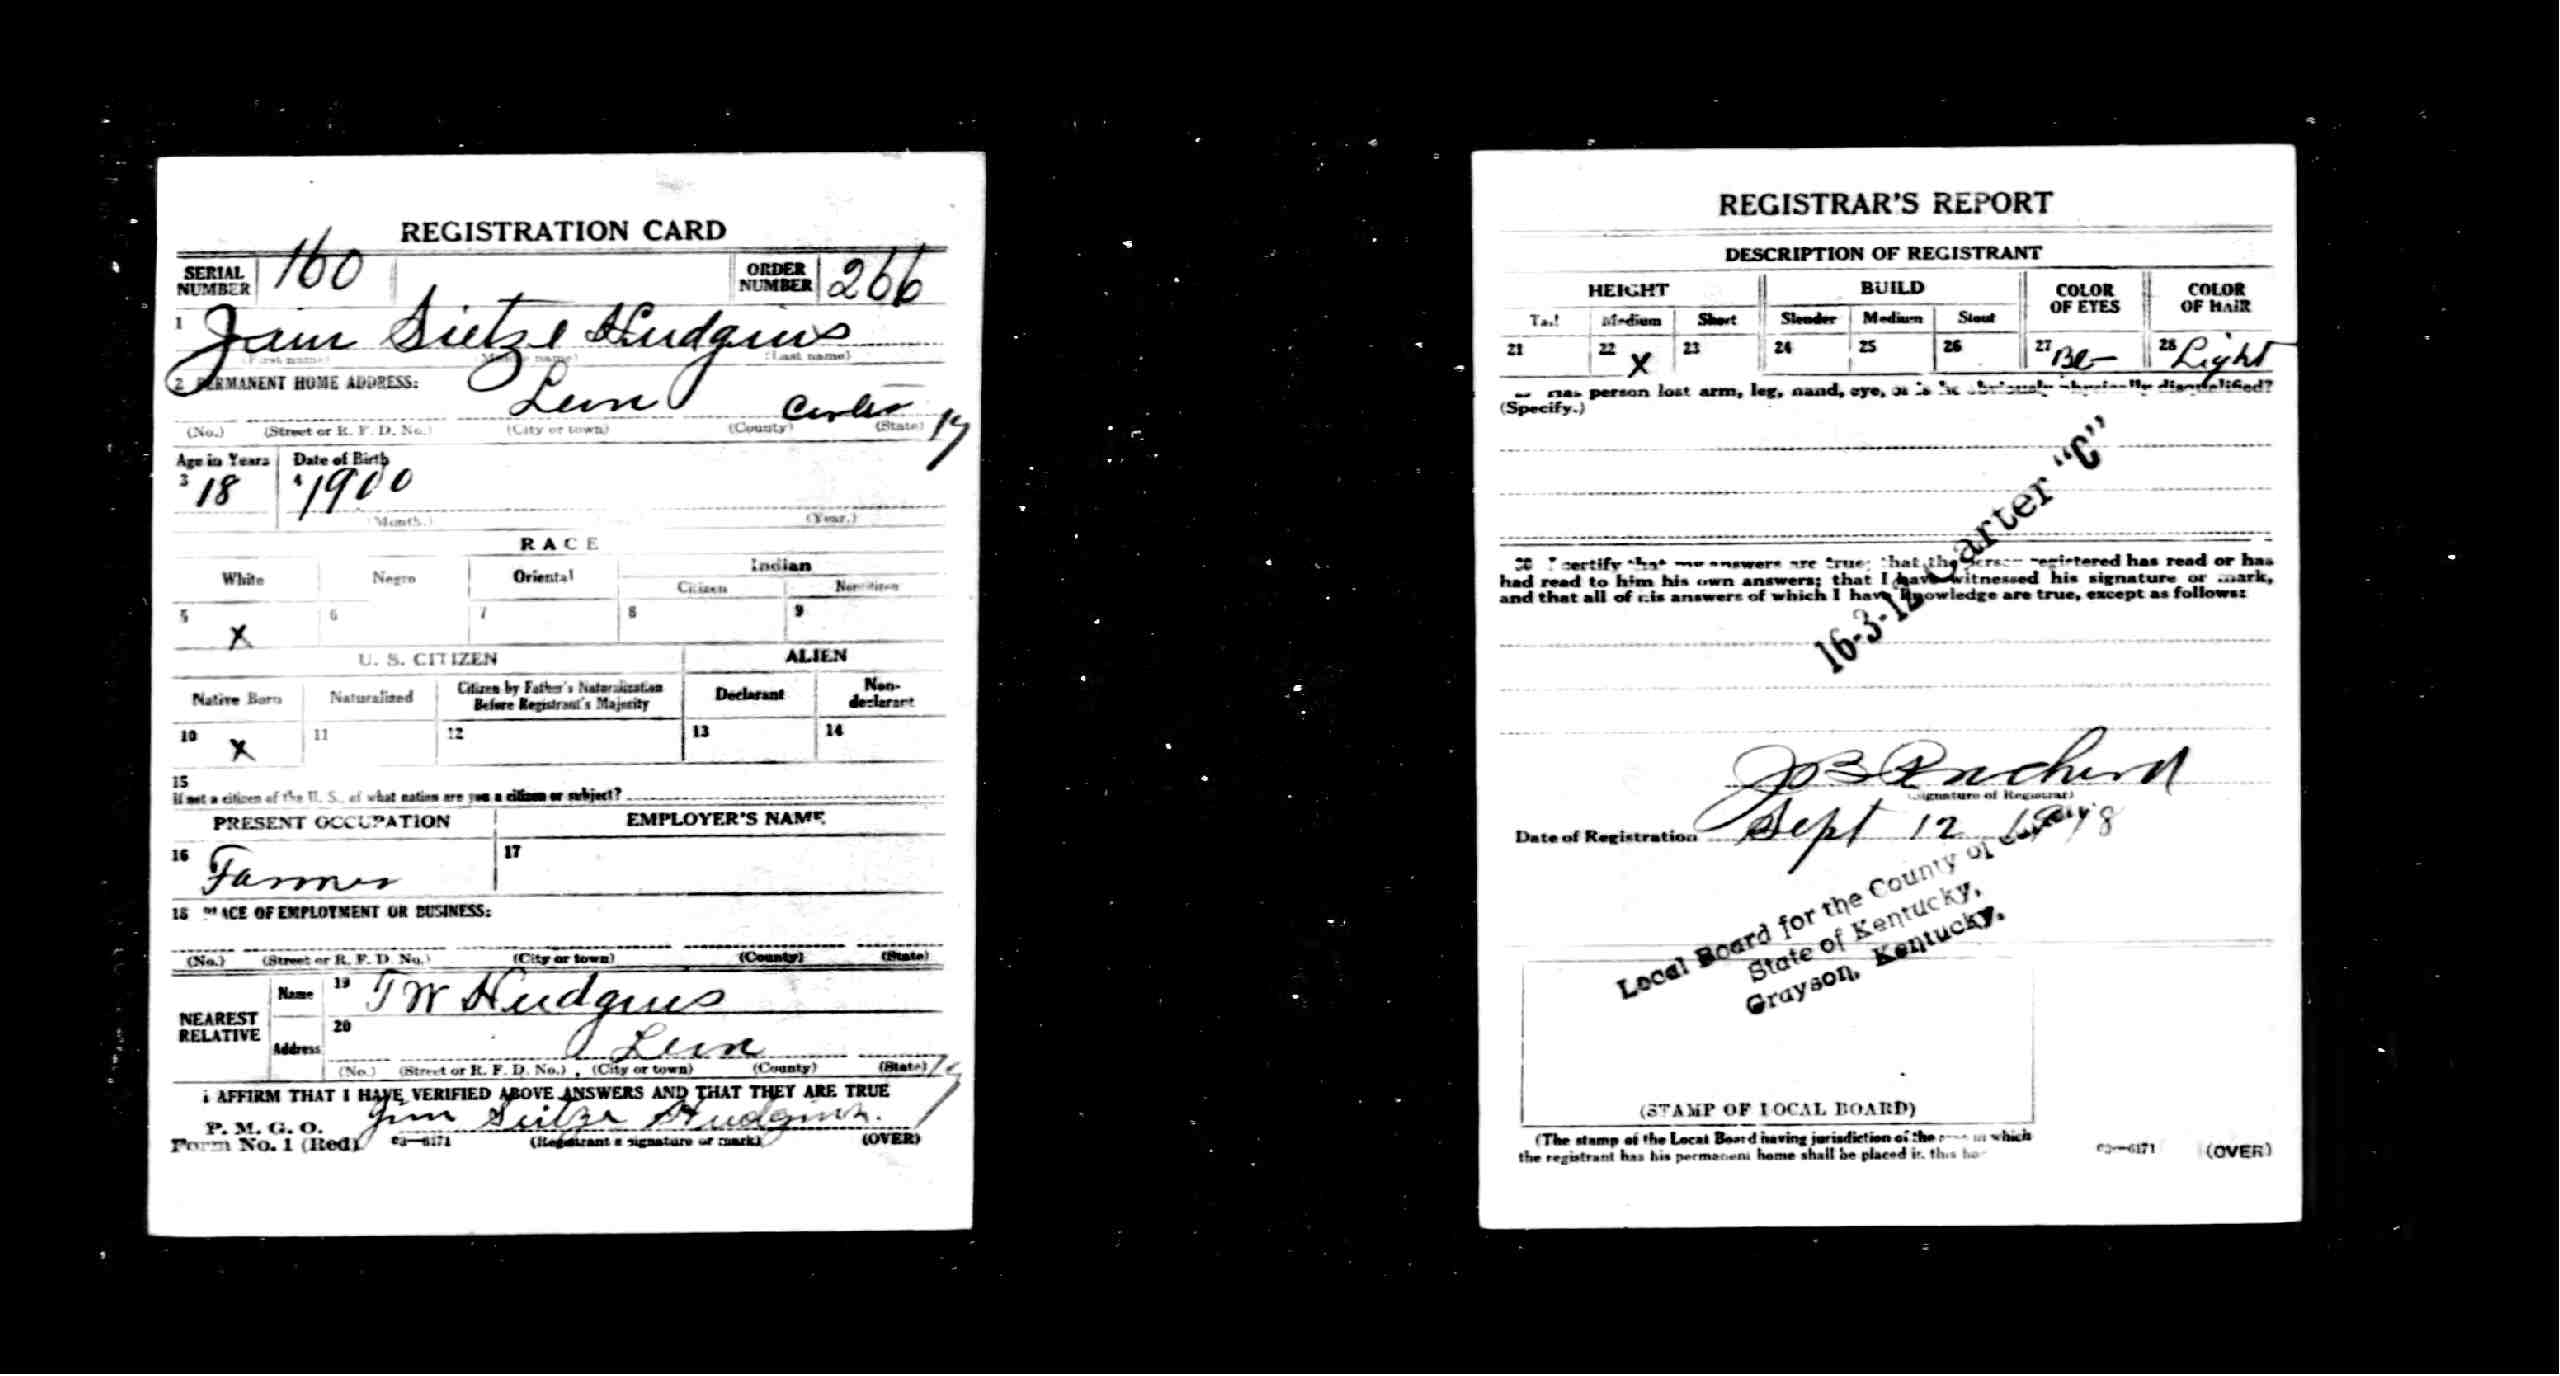 REGISTRATION CARD
SERIAL NUMBER 160 ORDER NUMBER 266
1 Jim Sietze Hudgins
(First name) (Middle name) (Last name)
2 PERMANENT HOME ADDRESS:
Leon Carter Ky
(No.) (Street or R. F. D. No.) (City or town) (County) (State)
Age in Years Date of Birth
3 18 4 1900
(Month.) (Year.)
RACE
White Negro Oriental Indian
Citizen Noncitizen
5 X 6 7 8 9
U. S. CITIZEN ALIEN
Native Born Naturalized Citizen by Father's Naturalization Before Registrant's Majority Declarant Non-declarant
10 X 11 12 13 14
15
If not a citizen of the U. S., of what nation are you a citizen or subject?
PRESENT OCCUPATION EMPLOYER'S NAME
16 Farmer 17
18 PLACE OF EMPLOYMENT OR BUSINESS:
(No.) (Street or R. F. D. No.) (City or town) (County) (State)
NEAREST RELATIVE Name 19 T W Hudgins
Address 20 Leon Ky
(No.) (Street or R. F. D. No.) (City or town) (County) (State)
I AFFIRM THAT I HAVE VERIFIED ABOVE ANSWERS AND THAT THEY ARE TRUE
P. M. G. O.
Form No. 1 (Red) 03—6171 Jim Seitze Hudgins.
(Registrant's signature or mark) (OVER)
REGISTRAR'S REPORT
DESCRIPTION OF REGISTRANT
HEIGHT BUILD COLOR OF EYES COLOR OF HAIR
Tall Medium Short Slender Medium Stout
21 22 X 23 24 25 26 27 Bl- 28 Light
has person lost arm, leg, hand, eye, or is he obviously physically disqualified?
(Specify.)
16-3-12 Carter "C"
30 I certify that my answers are true; that the person registered has read or has
had read to him his own answers; that I have witnessed his signature or mark,
and that all of his answers of which I have knowledge are true, except as follows:
(Signature of Registrar)
Date of Registration Sept 12 1918
Local Board for the County of Carter,
State of Kentucky,
Grayson, Kentucky.
(STAMP OF LOCAL BOARD)
(The stamp of the Local Board having jurisdiction of the area in which
the registrant has his permanent home shall be placed in this box.)
03—6171 (OVER)